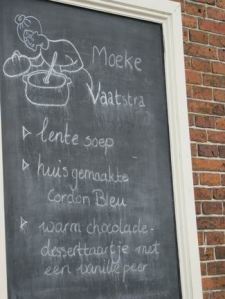 Moeke
Vaatstra
lente soep
huisgemaakte
Cordon Bleu
warm chocolade-
desserttaartje met
een vanillepeer